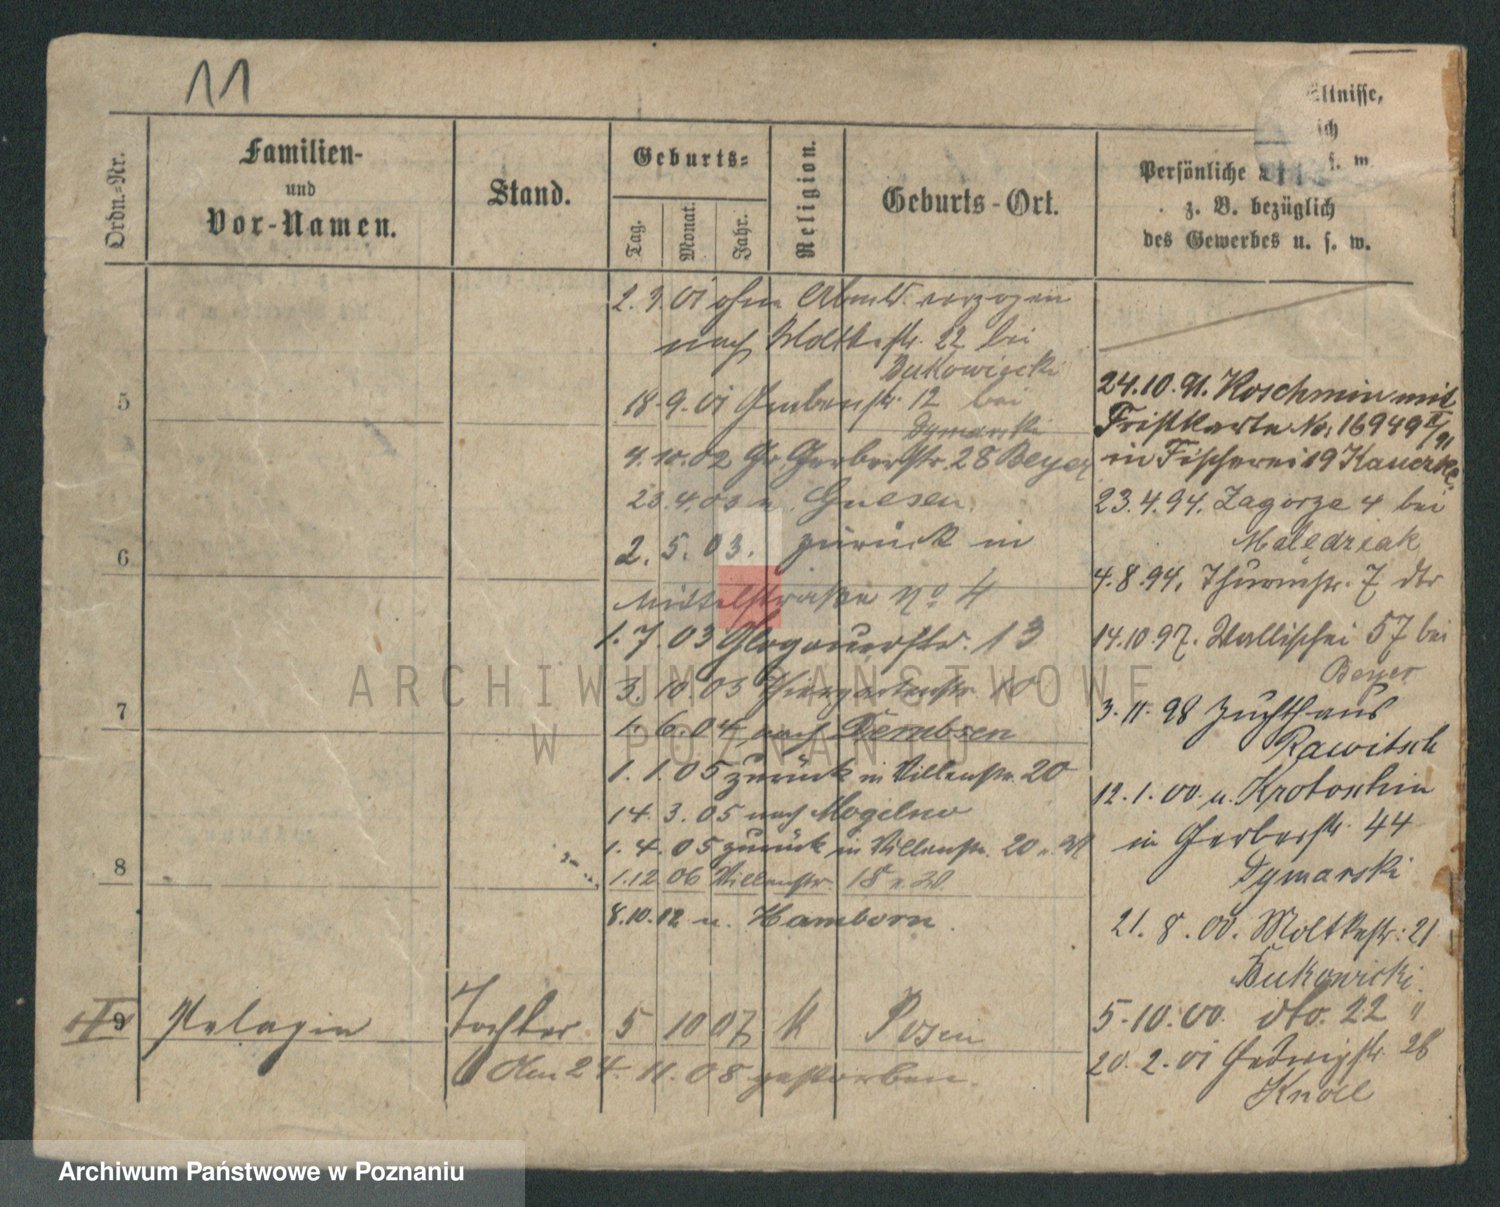 11
Ordn.-Nr.
Familien-
und
Vor-Namen.
Stand.
Geburts-
Tag.
Monat.
Jahr.
Religion.
Geburts-Ort.
ältnisse,
ich
s. m.
Persönliche
z. B. bezüglich
des Gewerbes u. s. w.
2. 9. 01 ohne Abmld. verzogen
nach Moltkestr. 22 bei
Bukowiecki
18. 9. 01 Grabenstr. 12 bei
Dymarski
4. 10. 02 Gr. Gerberstr. 28 Beyer
23. 4. 03 n. Gnesen.
2. 5. 03. zurück in
Mittelstraße No 4
1. 7. 03 Glogauerstr. 13
3. 10 03 Thiergartenstr. 10
1. 6. 04, nach Dembsen
1. 1. 05 zurück in Villenstr. 20
14. 3. 05 nach Mogelno
1. 4. 05 zurück in Villenstr. 20
1. 12 06 Villenstr. 18
8. 10. 12 n. Hamborn.
5
6
7
8
24. 10. 91. Koschmin mit
Fristkarte No. 16949
in Fischerei 19
23. 4. 94. Zagorze 4 bei
Maledziak
4. 8. 94. Thurmstr. 7 dto
14. 10. 97. Wallischei 57 bei
Beyer
3. 11. 98 Zuchthaus
Rawitsch
12. 1. 00 n. Krotoschin
in Gerberstr. 44
Dymarski
21. 8. 00. Moltkestr. 21
Bukowiecki.
5. 10. 00. dto. 22 "
20. 2. 01 Hedwigstr. 26
Knoll
9 Pelagia Tochter 5 10 07 K Posen
Am 24. 11. 08 gestorben.
ARCHIWUM PAŃSTWOWE
W POZNANIU
Archiwum Państwowe w Poznaniu